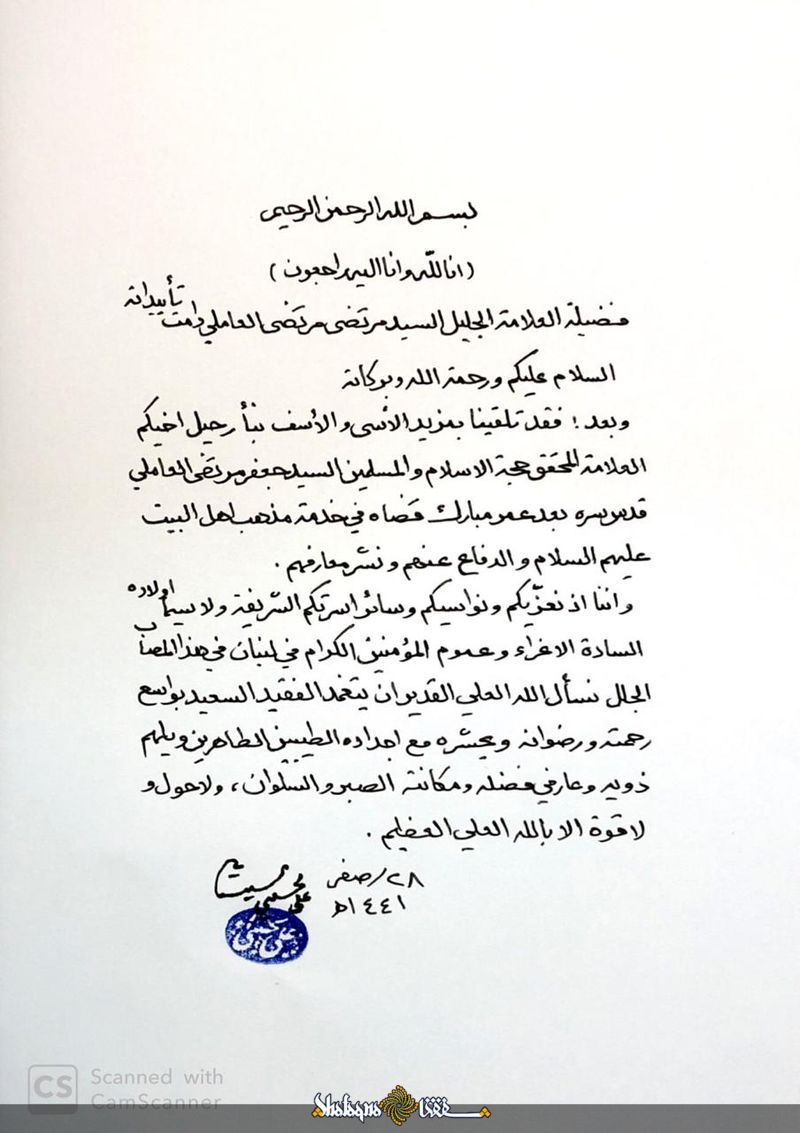 بسم الله الرحمن الرحيم
(انا لله وانا اليه راجعون)
فضيلة العلامة الجليل السيد مرتضى مرتضى العاملي دامت تأييداته
السلام عليكم ورحمة الله وبركاته
وبعد: فقد تلقينا بمزيد الأسى والأسف نبأ رحيل اخيكم
العلامة المحقق حجة الاسلام والمسلمين السيد جعفر مرتضى العاملي
قدس سره بعد عمر مبارك قضاه في خدمة مذهب اهل البيت
عليهم السلام والدفاع عنهم ونشر معارفهم.
واننا اذ نعزّيكم ونواسيكم وسائر اسرتكم الشريفة ولا سيما اولاده
السادة الاعزاء وعموم المؤمنين الكرام في لبنان في هذا المصاب
الجلل نسأل الله العلي القدير ان يتغمد الفقيد السعيد بواسع
رحمته ورضوانه ويحشره مع اجداده الطيبين الطاهرين ويلهم
ذويه وعارفي فضله ومكانته الصبر والسلوان، ولا حول و
لا قوة الا بالله العلي العظيم.
٢٨/صفر
١٤٤١هـ
علي الحسيني السيستاني
CS Scanned with
CamScanner
Shafaqna شفقنا